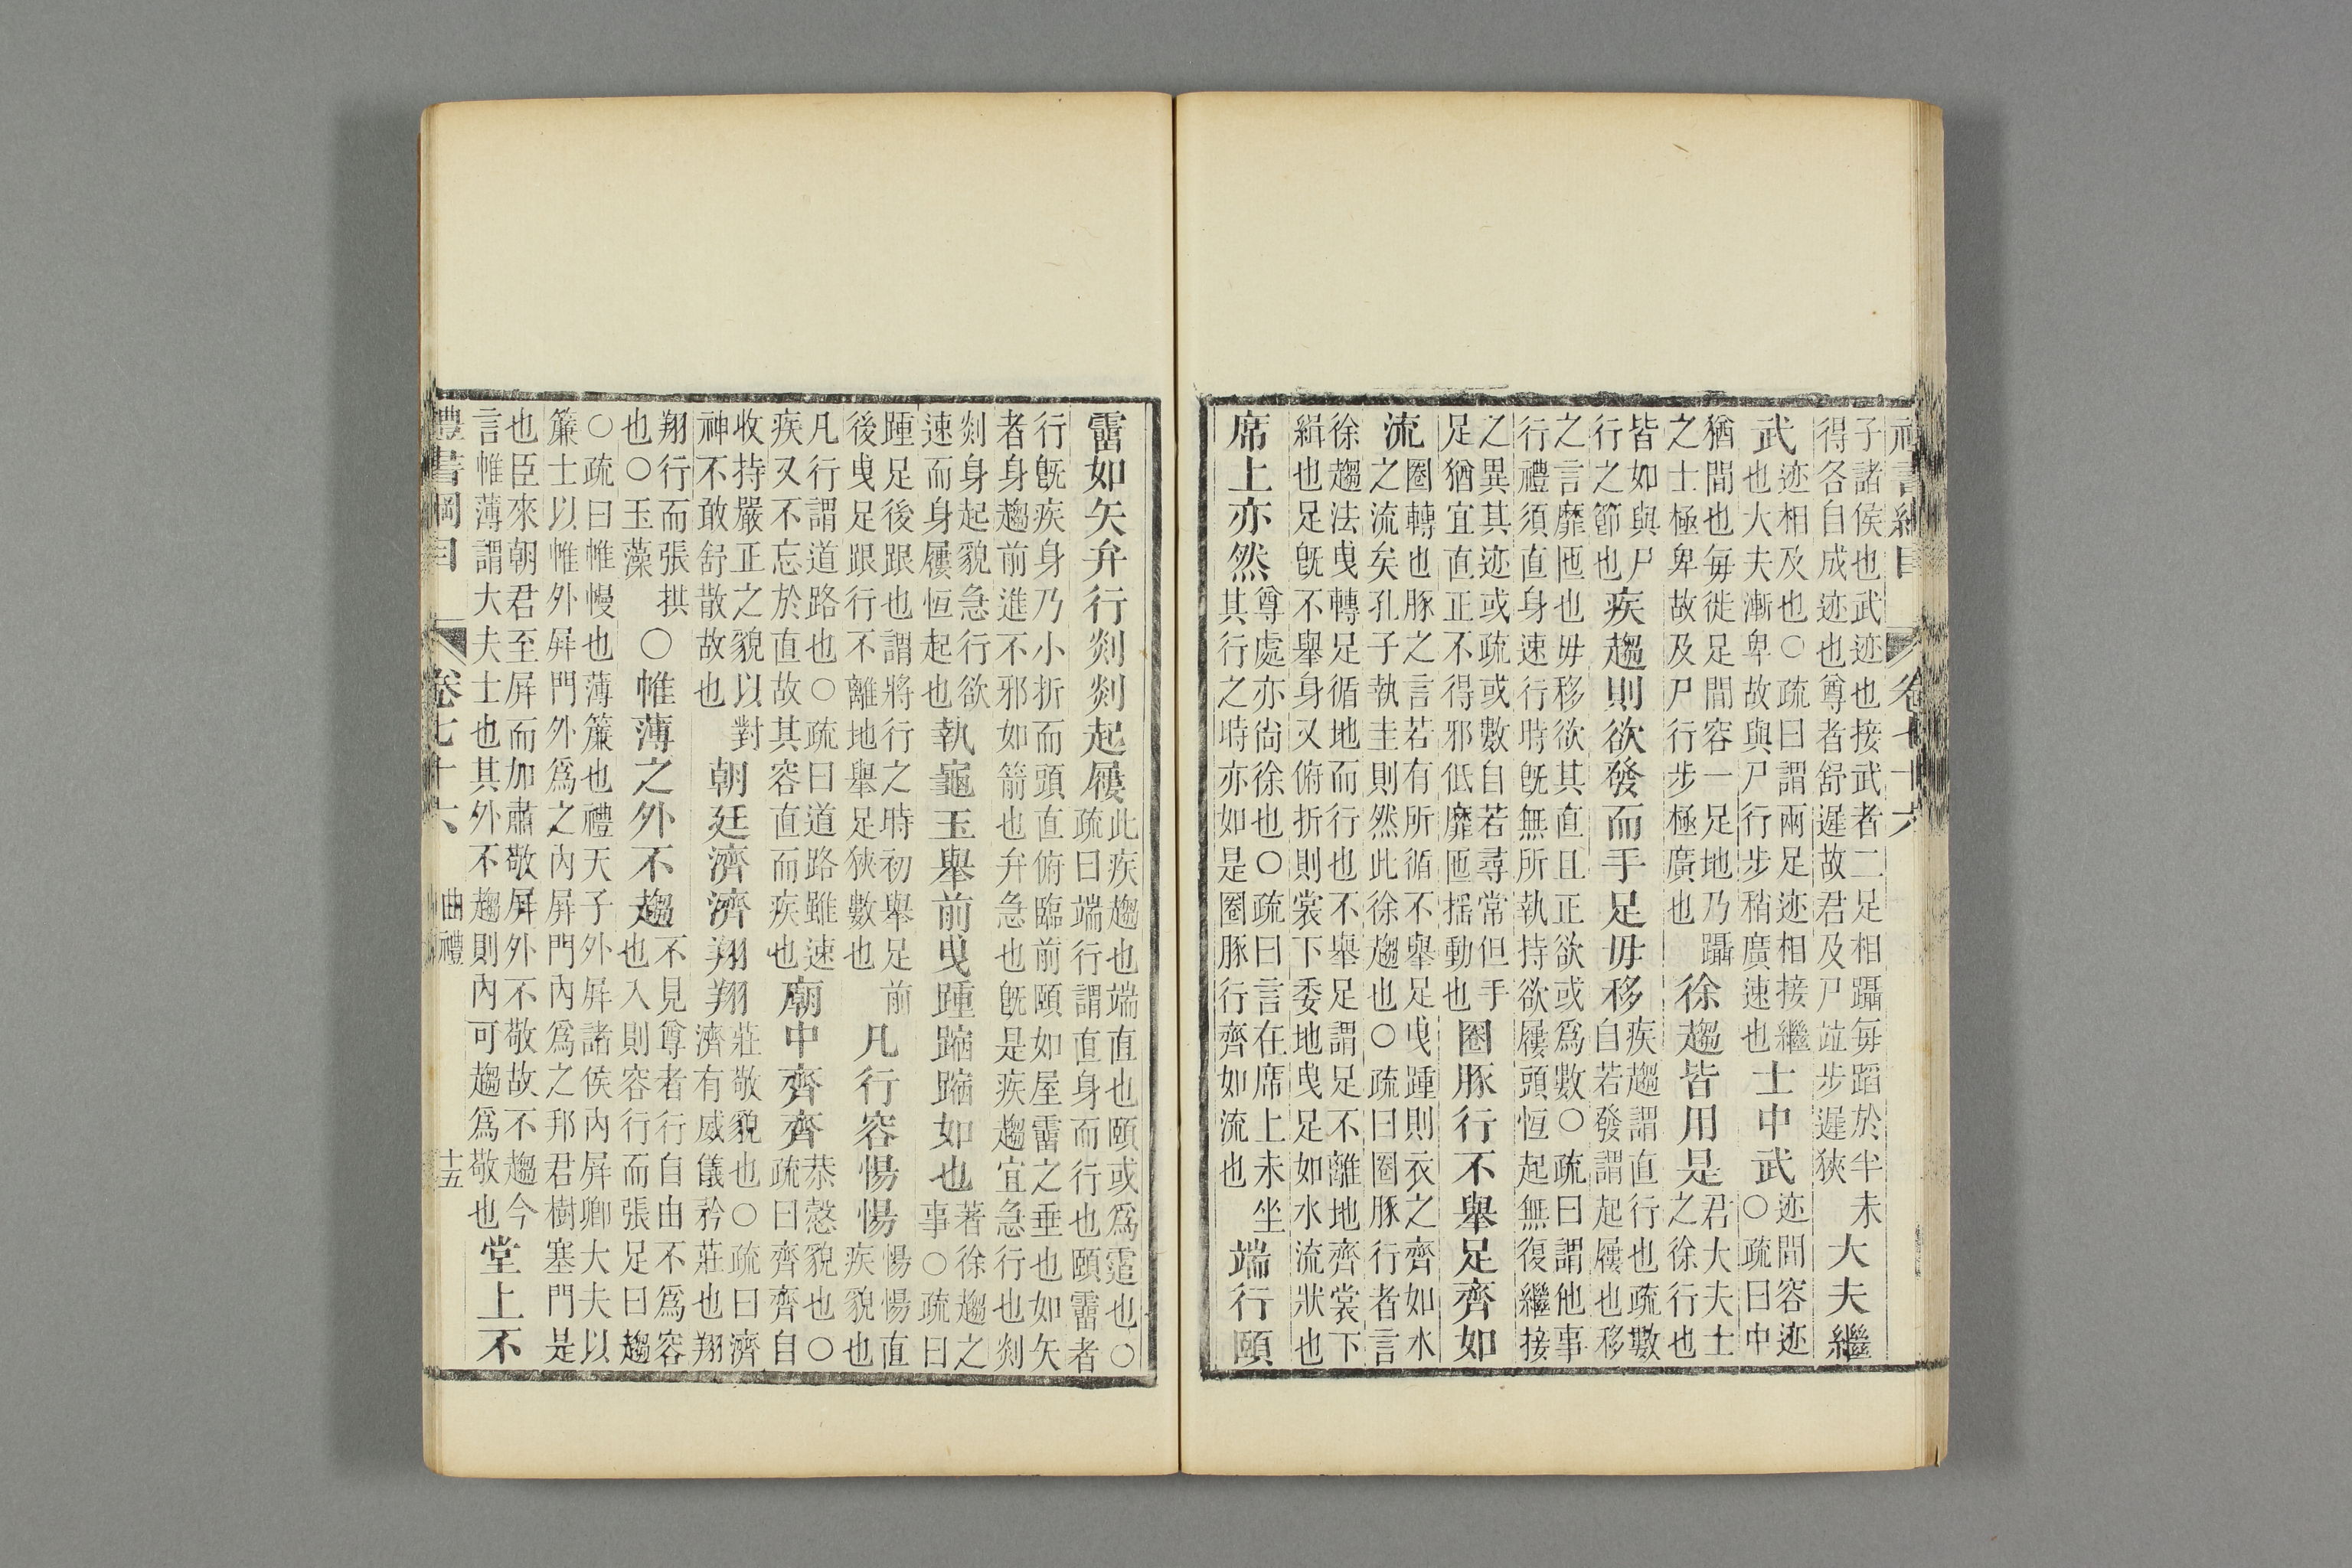 禮書綱目 卷七十六
子諸侯也武迹也接武者二足相躡每蹈於半未
得各自成迹也尊者舒遲故君及尸竝步遲狹
大夫繼
武
迹相及也○疏曰謂兩足迹相接繼
也大夫漸卑故與尸行步稍廣速也
士中武
迹間容迹
○疏曰中
猶間也每徙足間容一足地乃躡
之士極卑故及尸行步極廣也
徐趨皆用是
君大夫士
之徐行也
皆如與尸
行之節也
疾趨則欲發而手足毋移
疾趨謂直行也疏數
自若發謂起屨也移
之言靡迆也毋移欲其直且正欲或爲數○疏曰謂他事
行禮須直身速行時旣無所執持欲屨頭恒起無復繼接
之異其迹或疏或數自若尋常但手
足猶宜直正不得邪低靡迆搖動也
圈豚行不舉足齊如
流
圈轉也豚之言若有所循不舉足曳踵則衣之齊如水
之流矣孔子執圭則然此徐趨也○疏曰圈豚行者言
徐趨法曳轉足循地而行也不舉足謂足不離地齊裳下
緝也足旣不舉身又俯折則裳下委地曳足如水流狀也
席上亦然
尊處亦尙徐也○疏曰言在席上未坐
其行之時亦如是圈豚行齊如流也
端行頤
霤如矢弁行剡剡起屨
此疾趨也端直也頤或爲霆也○
疏曰端行謂直身而行也頤霤者
行旣疾身乃小折而頭直俯臨前頤如屋霤之垂也如矢
者身趨前進不邪如箭也弁急也旣是疾趨宜急行也剡
剡身起貌急行欲
速而身屨恒起也
執龜玉舉前曳踵蹜蹜如也
著徐趨之
事○疏曰
踵足後跟也謂將行之時初舉足前
後曳足跟行不離地舉足狹數也
凡行容愓愓
愓愓直
疾貌也
凡行謂道路也○疏曰道路雖速
疾又不忘於直故其容直而疾也
廟中齊齊
恭慤貌也○
疏曰齊齊自
收持嚴正之貌以對
神不敢舒散故也
朝廷濟濟翔翔
莊敬貌也○疏曰濟
濟有威儀矜莊也翔
翔行而張拱
也○玉藻
○帷薄之外不趨
不見尊者行自由不爲容
也入則容行而張足曰趨
○疏曰帷幔也薄簾也禮天子外屛諸侯內屛卿大夫以
簾士以帷外屛門外爲之內屛門內爲之邦君樹塞門是
也臣來朝君至屛而加肅敬屛外不敬故不趨今
言帷薄謂大夫士也其外不趨則內可趨爲敬也
堂上不
禮書綱目 卷七十六 曲禮 十五